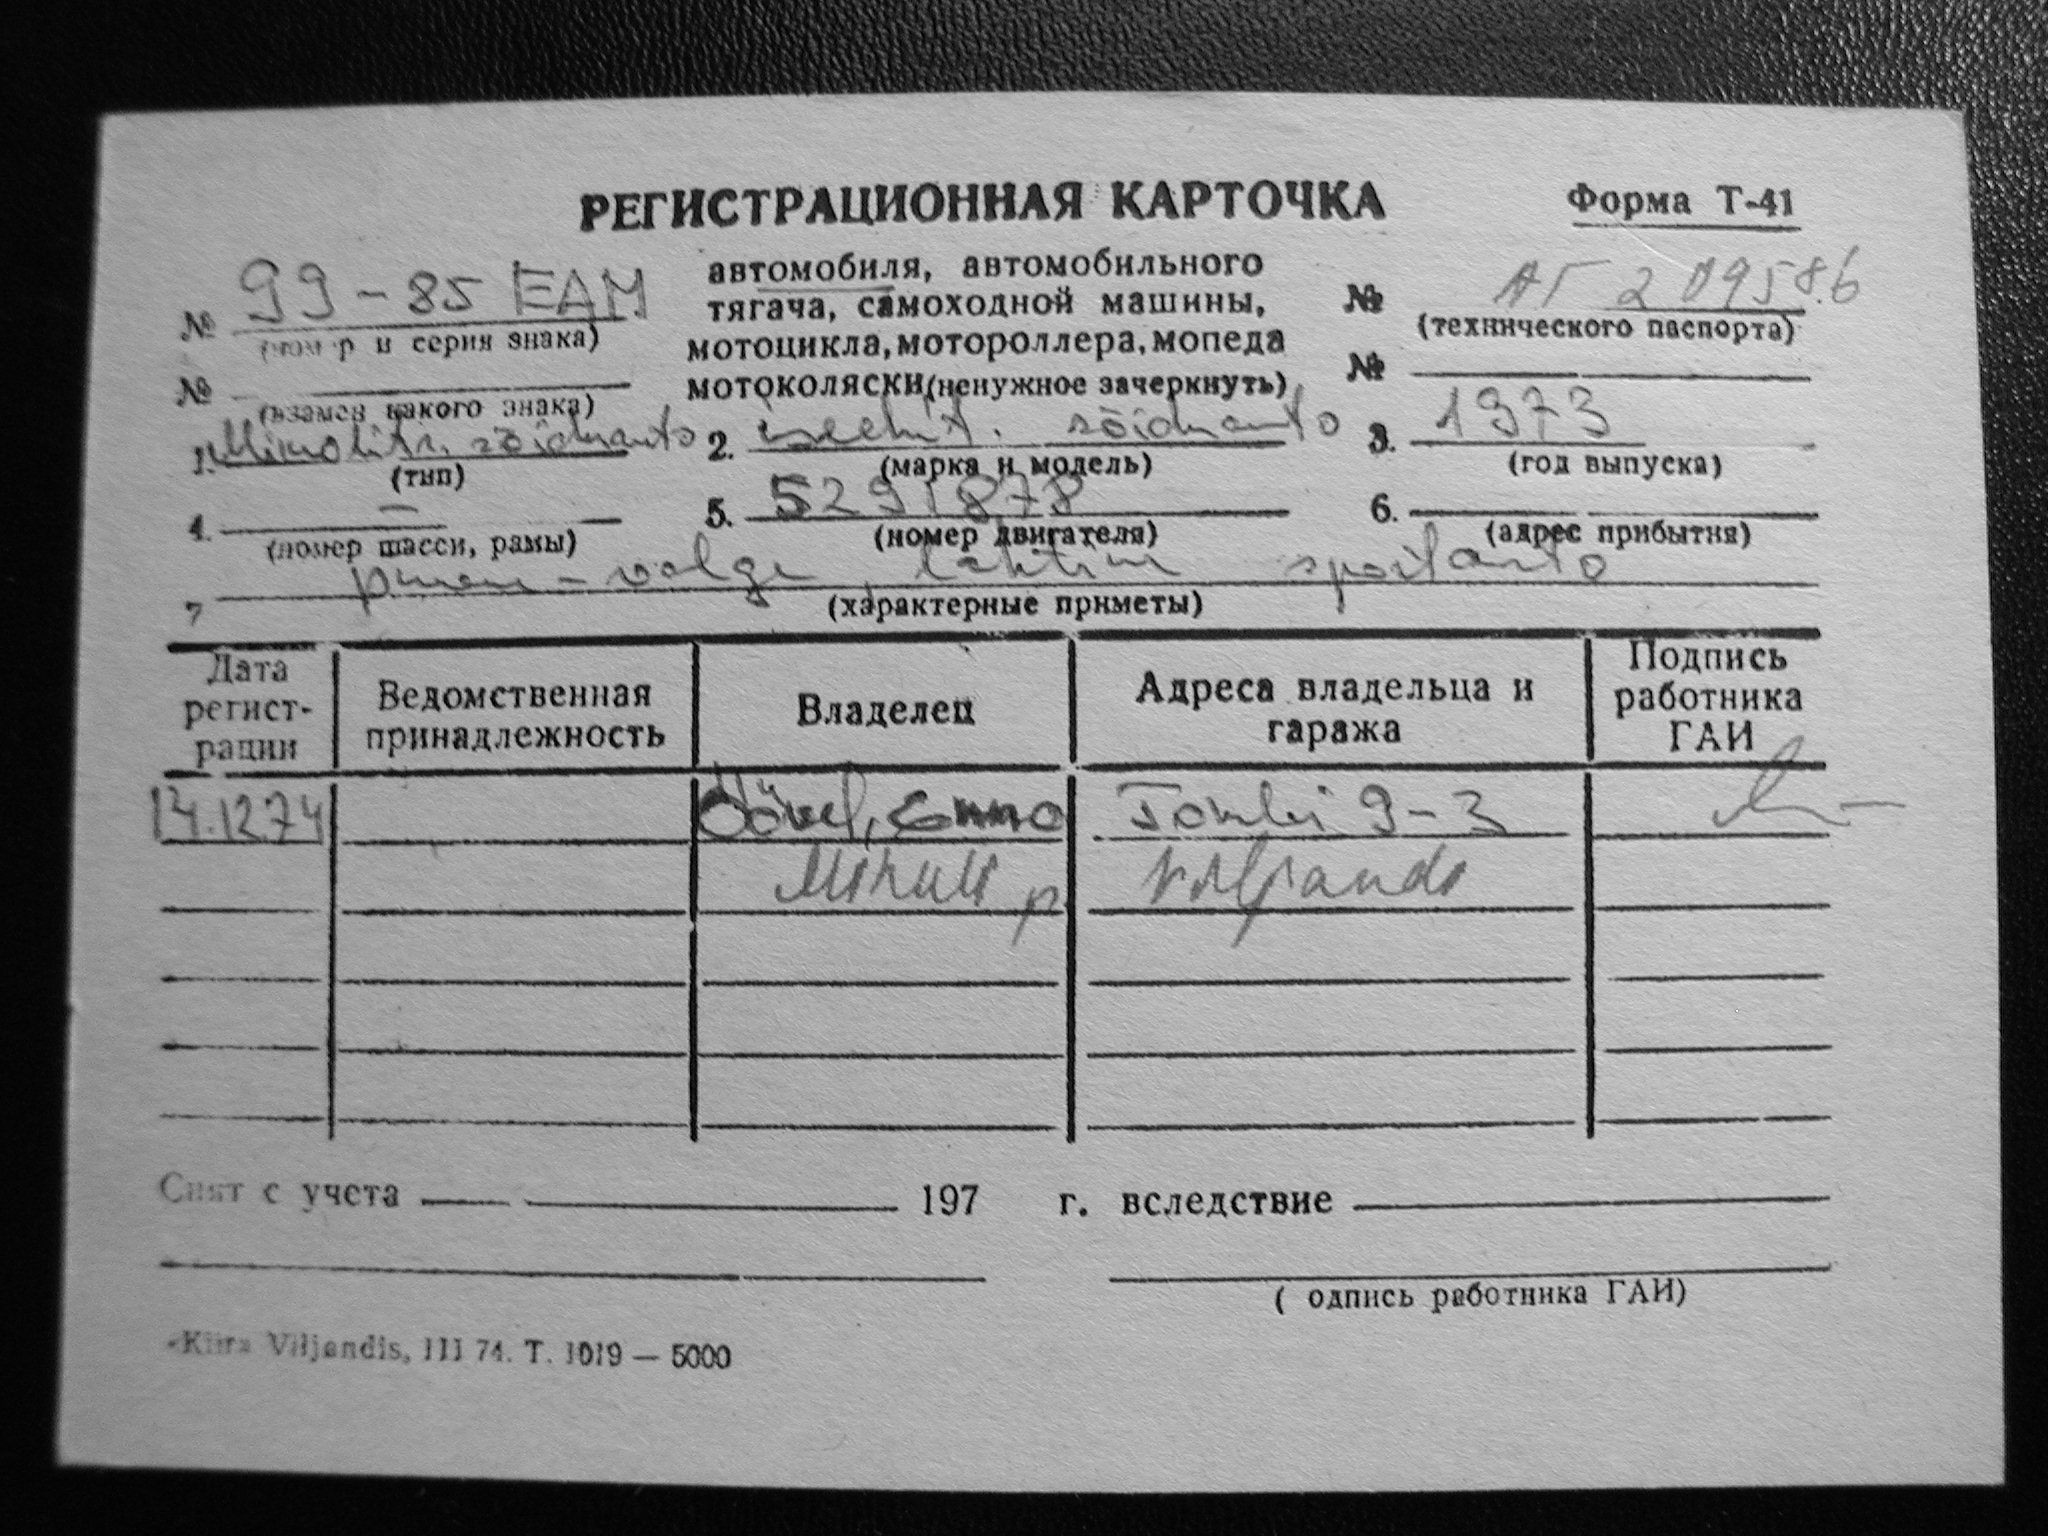 РЕГИСТРАЦИОННАЯ КАРТОЧКА
Форма Т-41
автомобиля, автомобильного
тягача, самоходной машины,
мотоцикла, мотороллера, мопеда
мотоколяски (ненужное зачеркнуть)
№ 99-85 EAM
(номер и серия знака)
№
(взамен какого знака)
№ АГ 209586
(технического паспорта)
№
1. sõiduauto
(тип)
2. iseehit. sõiduauto
(марка и модель)
3. 1973
(год выпуска)
4. —
(номер шасси, рамы)
5. 5291878
(номер двигателя)
6.
(адрес прибытия)
7 punane-valge lahtine sportauto
(характерные приметы)
Дата регист-рации
Ведомственная принадлежность
Владелец
Адреса владельца и гаража
Подпись работника ГАИ
14.12.74 Enno 9-3
Mihkli p. Viljandi
Снят с учета 197 г. вследствие
( одпись работника ГАИ)
«Kiir» Viljandis, III 74. T. 1019 — 5000